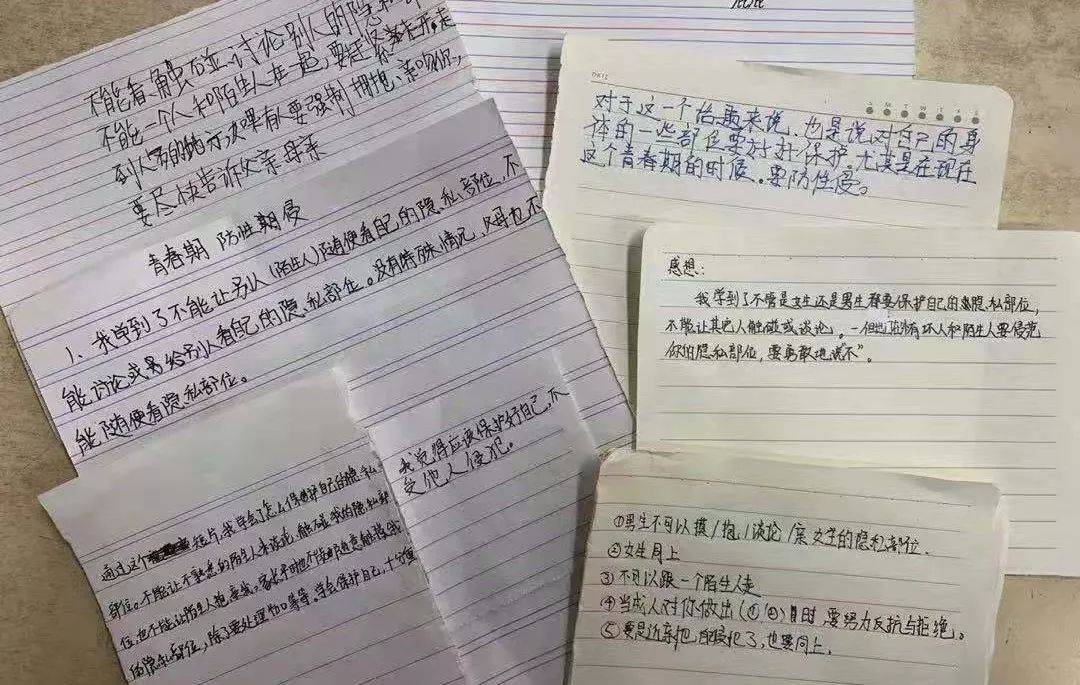 不能看、触或并讨论别人的隐私部
不能一个人和陌生人在一起,要赶紧离开,走
到人多的地方如果有要强制拥抱、亲吻你,
要尽快告诉父亲母亲
青春期 防性期侵
1、我学到了不能让别人(陌生人)随便看自己的隐私部位,不
能讨论或另给别人看自己的隐私部位。没有特殊情况,父母也不
能随便看隐私部位。
对于这一个话题来说,也是说对自己的身
体的一些部位要好好保护。尤其是在现在
这个青春期的时候。要防性侵。
感想:
我学到了不管是女生还是男生都要保护自己的隐私部位,
不能让其它人触碰或谈论。一但有坏人和陌生人要侵犯
你的隐私部位,要勇敢地说“不”。
我觉得应该保护好自己,不
受他人侵犯。
通过这个短片,我学会了怎么保护自己的隐私
部位。不能让不熟悉的陌生人来谈论、触碰我的隐私部
位,也不能让陌生人抱
的隐私部位,除了要处理伤口等等。学会保护自己,十分重
①男生不可以摸/抱/谈论/亲女生的隐私部位.
②女生同上
③不可以跟一个陌生人走
④当成人对你做出(①②)时,要努力反抗与拒绝。
⑤要是近亲把
了,也要同上.